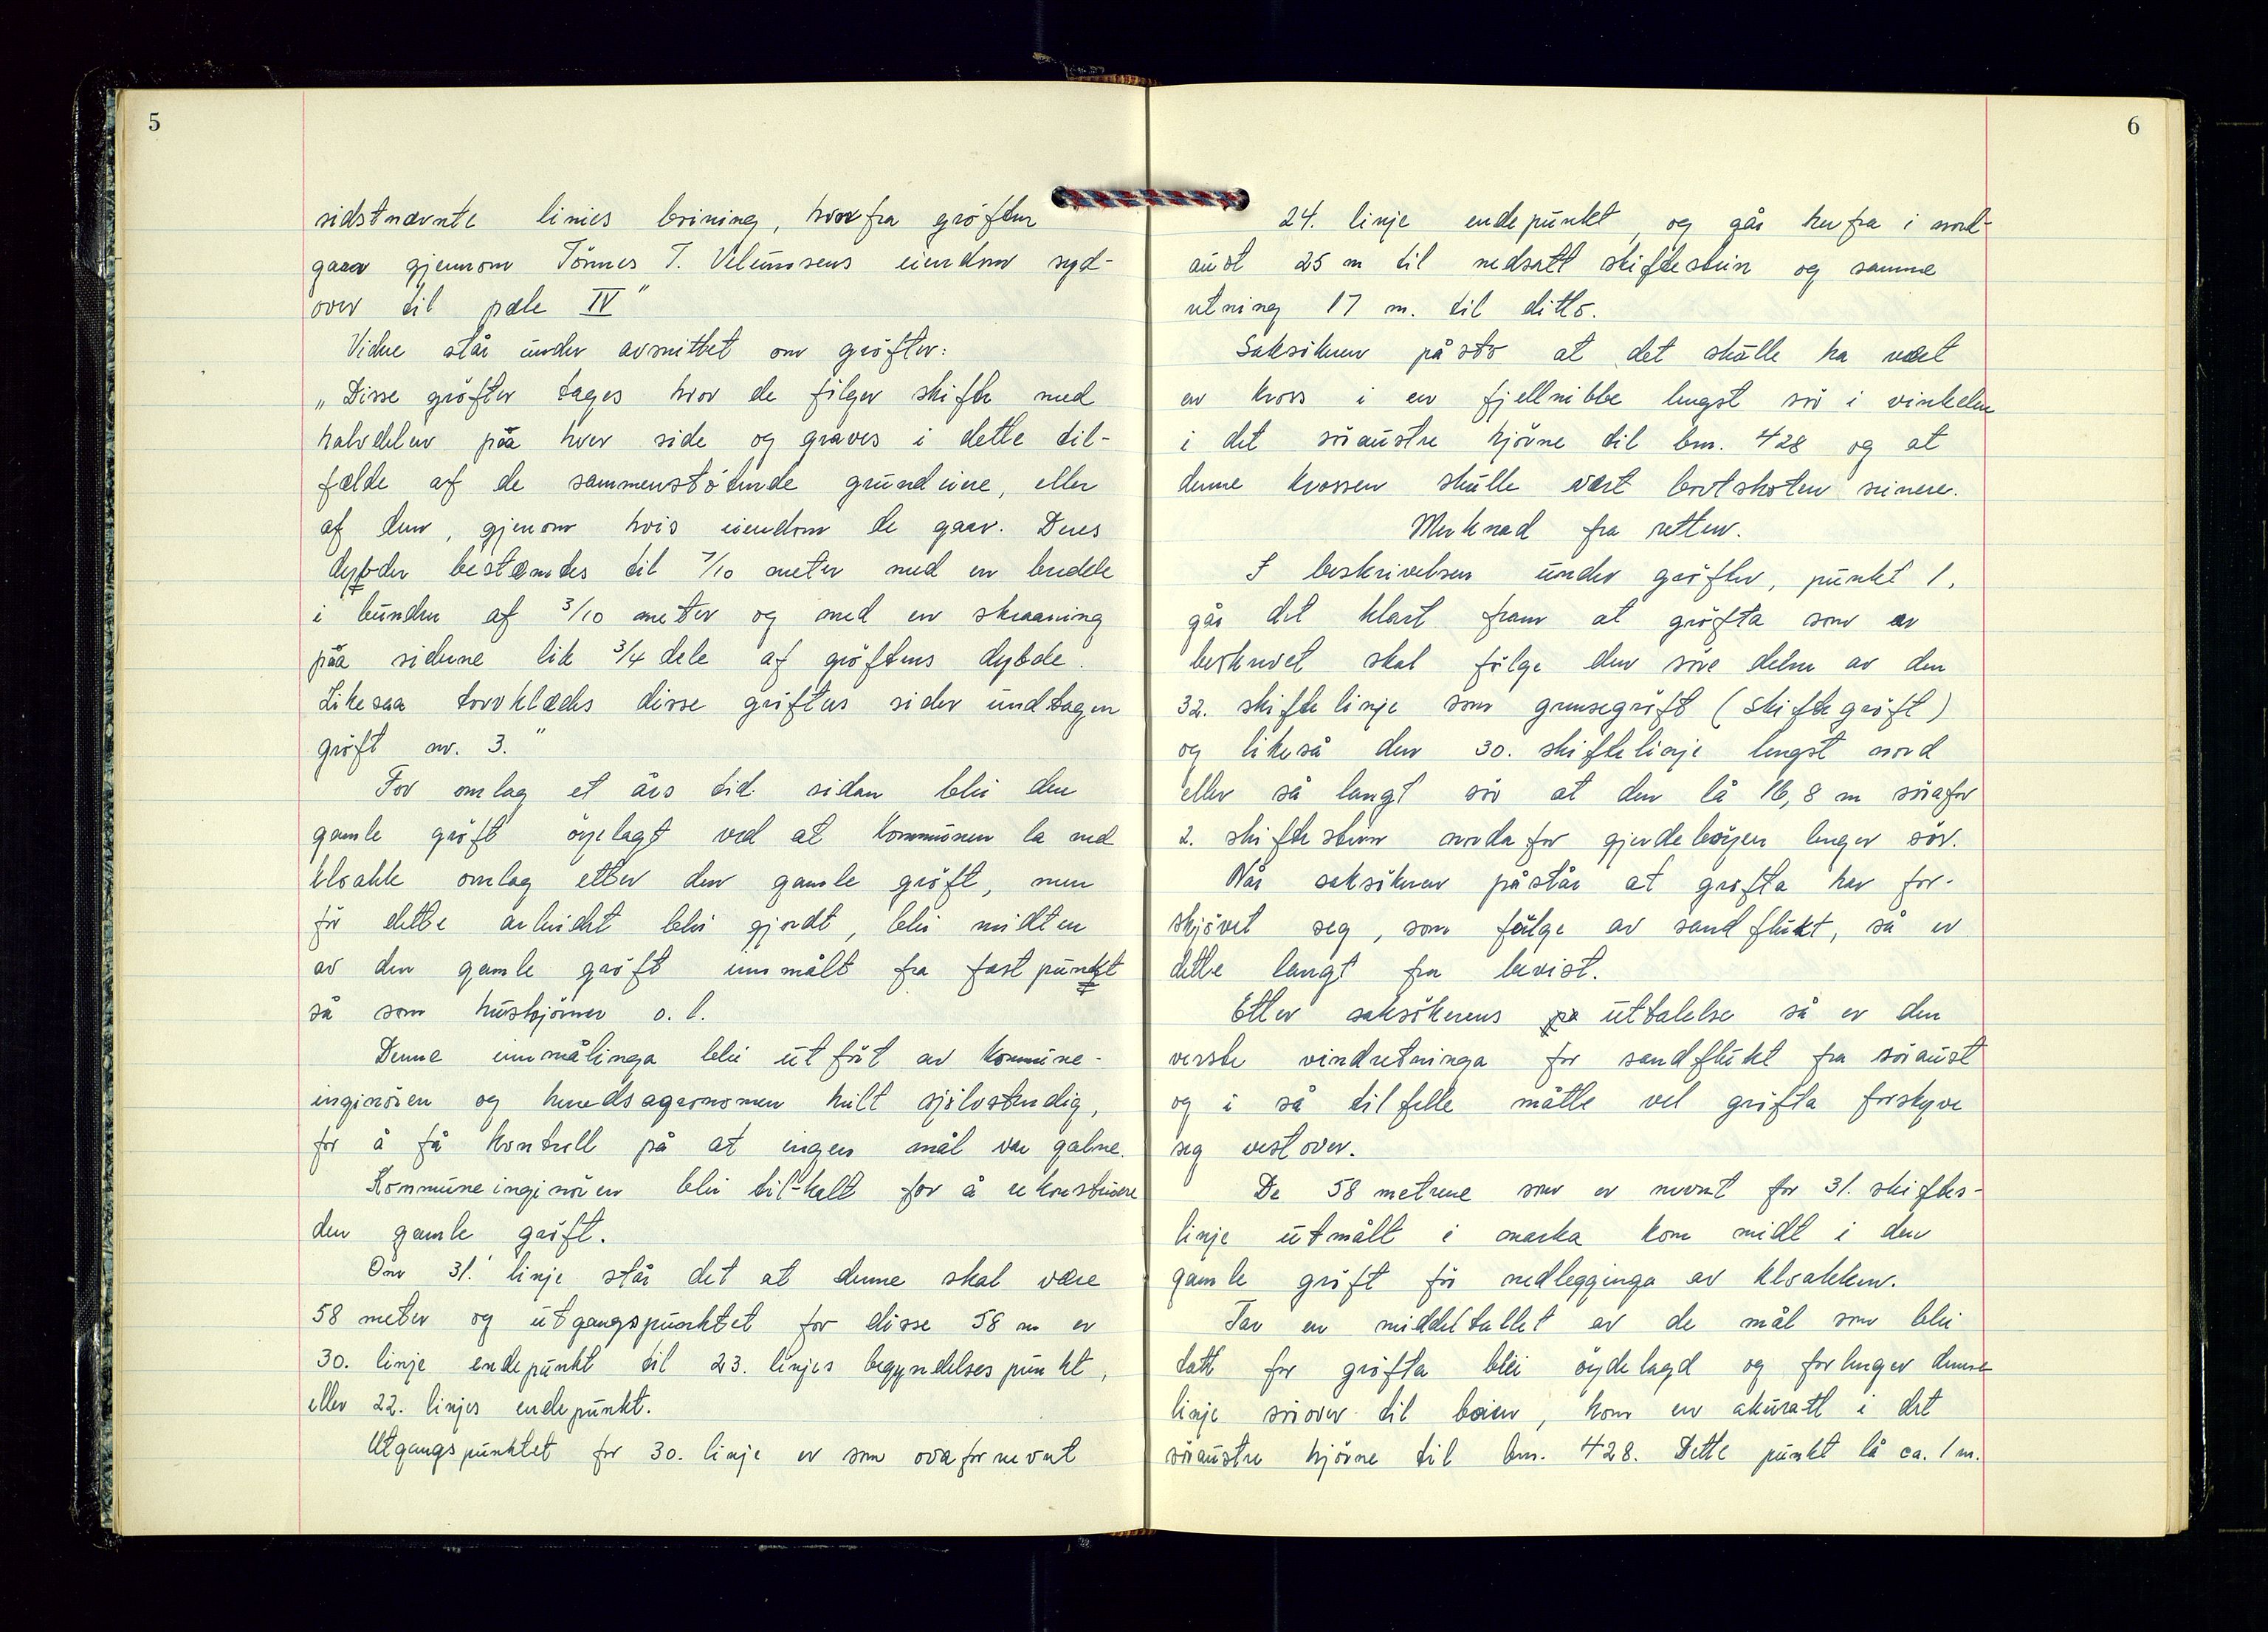 5
sidstnævnte linies brining, hvorfra gröften
gaar gjennom Tönnes T. Velumsens eiendom syd-
over til pæle IV"
Videre står under avsnittet om gröfter:
„Disse gröfter tages hvor de fölger skifte med
halvdelen paa hver side og graves i dette til-
fælde af de sammenstötende grundeiere, eller
af den, gjenom hvis eiendom de gaar. Deres
dybder bestæmtes til 7/10 meter med en bredde
i bunden af 3/10 meter og med en skraaning
paa siderne lik 3/4 dele af gröftens dybde.
Likesaa torvklædes disse gröftes sider undtagen
gröft nr. 3."
For omlag et års tid sidan blei den
gamle gröft öyelagt ved at kommunen la ned
kloakk omlag etter den gamle gröft, men
för dette arbeidet blei gjordt, blei midten
av den gamle gröft innmålt fra fastpunkt
så som hushjörner o. l.
Denne innmålinga blei utfört av kommune-
inginören og heredsagronomen heilt sjölvstendig,
for å få kontroll på at ingen mål var galne.
Kommuneinginören blei til-kalt for å rekonstruere
den gamle gröft.
Om 31. linje står det at denne skal være
58 meter og utgangspunktet for disse 58 m er
30. linje endepunkt til 23. linjes begyndelsespunkt,
eller 22. linjes endepunkt.
Utgangspunktet for 30. linje er som ovafornevnt
6
24. linje endepunkt, og går herfra i nord-
aust 25 m til nedsatt skiftestein og samme
retning 17 m. til ditto.
Saksökeren påsto at det skulle ha vært
en kross i en fjellnibbe lengst sör i vinkelen
i det söraustre hjörne til bnr. 428 og at
denne krossen skulle vært bortskoten seinere.
Merknad fra retten.
I beskrivelsen under gröfter, punkt 1.
går det klart fram at gröfta som er
beskrevet skal fölge den söre delen av den
32. skiftelinje som grensegröft (skiftegröft)
og likeså den 30. skiftelinje lengst nord
eller så langt sör at den lå 16,8 m sörafor
2. skiftestein nordafor gjerdeböyen lenger sör.
Når saksökeren påstår at gröfta har for-
skjövet seg, som fölge av sandflukt, så er
dette langt fra bevist.
Etter saksökerens uttalelse så er den
verste vindretninga for sandflukt fra söraust
og i så tilfelle måtte vel gröfta forskyve
seg vestover.
De 58 metrene som er nevnt for 31. skiftes-
linje utmålt i marka kom midt i den
gamle gröft för nedlegginga av kloakken.
Tar en middeltallet av de mål som blei
tatt for gröfta blei öydelagd og forlenger denne
linje sörover til beien, kom en akuratt i det
söraustre hjörne til bnr. 428. Dette punkt lå ca. 1 m.